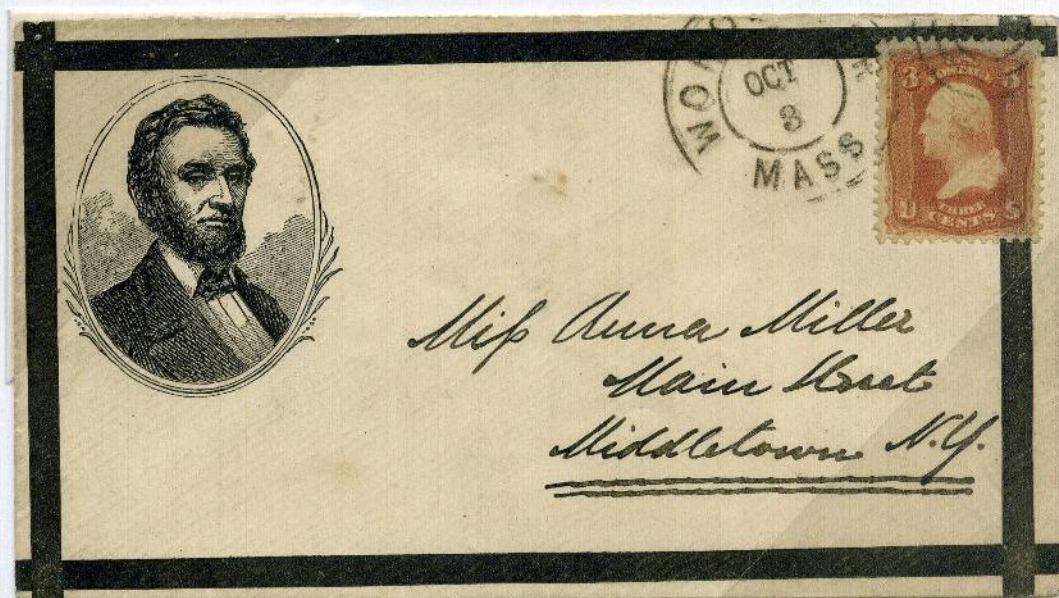 WOR
OCT
3
MASS
3 3
U S
THREE
CENTS
Miſs Anna Miller
Main Street
Middletown N.Y.